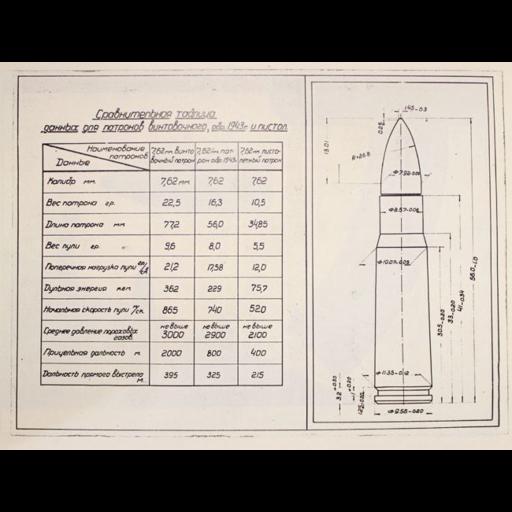 Сравнительная таблица
данных для патронов винтовочного, обр. 1943г и пистол.
Наименование патронов
Данные
7,62мм винто-вочный патрон
7,62мм пат-рон обр. 1943г.
7,62мм писто-летный патрон
Калибр мм. 7,62 мм 7,62 7,62
Вес патрона гр. 22,5 16,3 10,5
Длина патрона мм 77,2 56,0 34,85
Вес пули гр. " 9,6 8,0 5,5
Поперечная нагрузка пули гр/см² 21,2 17,58 12,0
Дульная энергия кгм 362 229 75,7
Начальная скорость пули м/ск. 865 740 520
Среднее давление пороховых газов. не выше 3000 не выше 2900 не выше 2100
Прицельная дальность м. 2000 800 400
Дальность прямого выстрела м. 395 325 215
13.01
R≈20.8
56.0-1.0
33-0.20
30.5-0.20